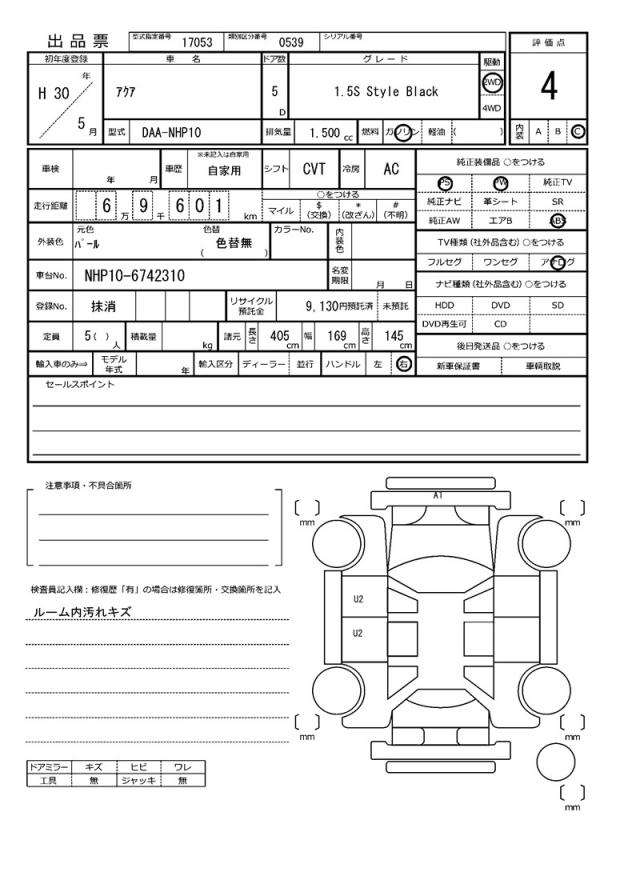 出 品 票
型式指定番号 17053 類別区分番号 0539 シリアル番号
評 価 点
4
初年度登録 車 名 ドア数 グ レ ー ド 駆動
H 30 年 5 月
アクア
5 D
1.5S Style Black
2WD
4WD
型式 DAA-NHP10 排気量 1.500 cc 燃料 ガソリン 軽油 ( )
内装 A B C
車検 年 月 車歴 ※未記入は自家用 自家用 シフト CVT 冷房 AC
走行距離 6 万 9 千 6 0 1 km
○をつける
マイル $ (交換) * (改ざん) # (不明)
外装色 元色 パール 色替 色替無 ( ) カラーNo. 内装色
車台No. NHP10-6742310 名変期限 月 日
登録No. 抹消 リサイクル預託金 9,130円預託済 未預託
定員 5 ( ) 人 積載量 kg 諸元 長さ 405 cm 幅 169 cm 高さ 145 cm
輸入車のみ⇒ モデル年式 年 輸入区分 ディーラー 並行 ハンドル 左 右
純正装備品 ○をつける
PS PW 純正TV
純正ナビ 革シート SR
純正AW エアB ABS
TV種類 (社外品含む) ○をつける
フルセグ ワンセグ アナログ
ナビ種類 (社外品含む) ○をつける
HDD DVD SD
DVD再生可 CD
後日発送品 ○をつける
新車保証書 車輌取説
セールスポイント
注意事項・不具合箇所
検査員記入欄：修復歴「有」の場合は修復箇所・交換箇所を記入
ルーム内汚れキズ
ドアミラー キズ ヒビ ワレ
工具 無 ジャッキ 無
A1
〔 〕 mm
〔 〕 mm
U2
U2
〔 〕 mm
〔 〕 mm
〔 〕 mm